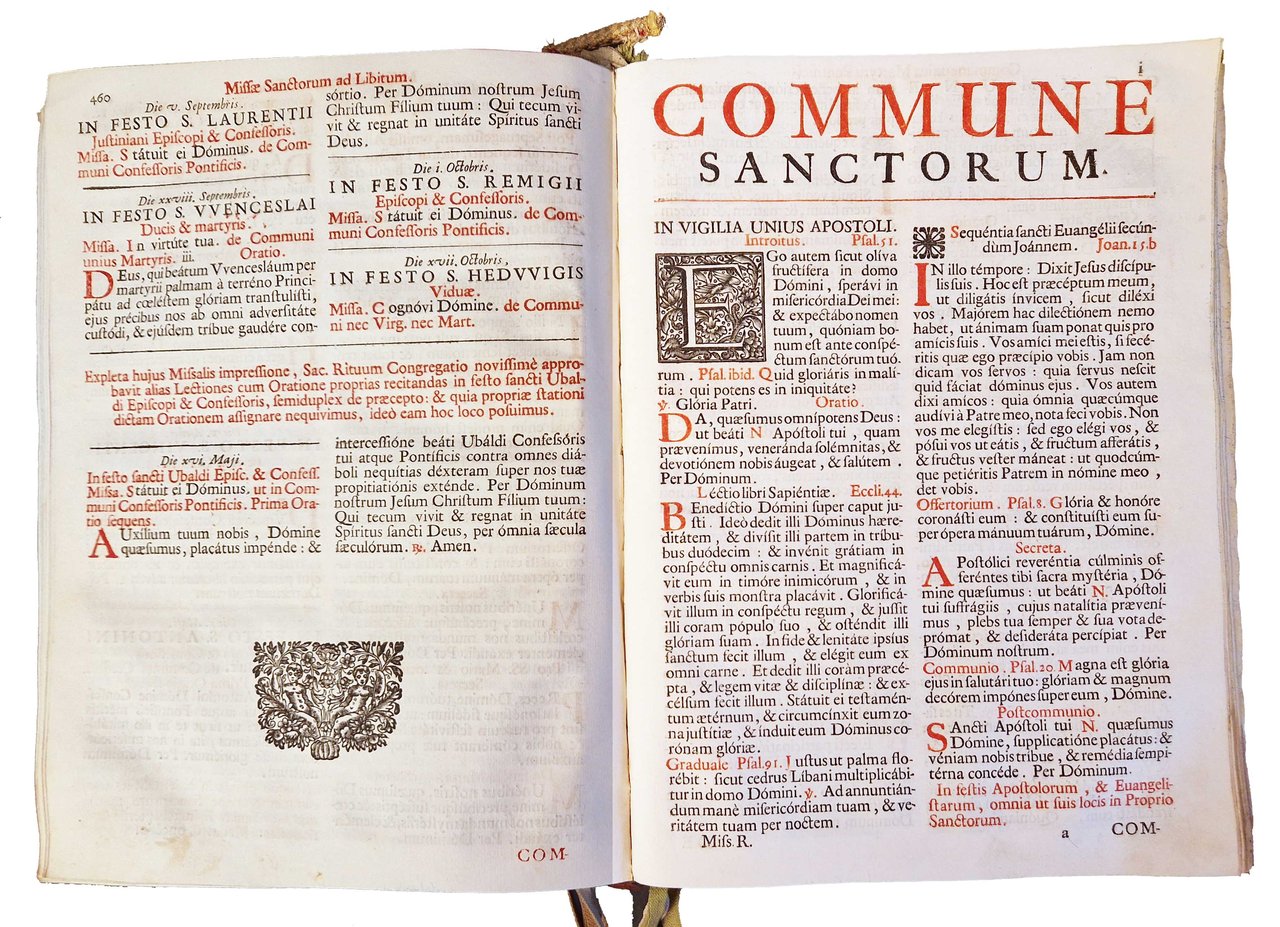 460
Missæ Sanctorum ad Libitum.
Die v. Septembris.
IN FESTO S. LAURENTII
Justiniani Episcopi & Confessoris.
Missa. Státuit ei Dóminus. de Com-
muni Confessoris Pontificis.
Die xxviii. Septembris.
IN FESTO S. VVENCESLAI
Ducis & martyris.
Missa. In virtúte tua. de Communi
unius Martyris. iii. Oratio.
DEus, qui beátum Vvencesláum per
martyrii palmam à terréno Princi-
pátu ad cœléstem glóriam transtulísti,
ejus précibus nos ab omni adversitáte
custódi, & ejúsdem tríbue gaudére con-
sórtio. Per Dóminum nostrum Jesum
Christum Fílium tuum : Qui tecum vi-
vit & regnat in unitáte Spíritus sancti
Deus.
Die i. Octobris.
IN FESTO S. REMIGII
Episcopi & Confessoris.
Missa. Státuit ei Dóminus. de Com-
muni Confessoris Pontificis.
Die xvii. Octobris,
IN FESTO S. HEDVVIGIS
Viduæ.
Missa. Cognóvi Dómine. de Commu-
ni nec Virg. nec Mart.
Expleta hujus Missalis impressione, Sac. Rituum Congregatio novissimè appro-
bavit alias Lectiones cum Oratione proprias recitandas in festo sancti Ubal-
di Episcopi & Confessoris, semiduplex de præcepto: & quia propriæ stationi
dictam Orationem assignare nequivimus, ideò eam hoc loco posuimus.
Die xvi. Maji.
In festo sancti Ubaldi Episc. & Confess.
Missa. Státuit ei Dóminus. ut in Com-
muni Confessoris Pontificis. Prima Ora-
tio sequens.
AUxílium tuum nobis, Dómine
quæsumus, placátus impénde : &
intercessióne beáti Ubáldi Confessóris
tui atque Pontíficis contra omnes diá-
boli nequítias déxteram super nos tuæ
propitiatiónis exténde. Per Dóminum
nostrum Jesum Christum Fílium tuum:
Qui tecum vivit & regnat in unitáte
Spíritus sancti Deus, per ómnia sæcula
sæculórum. ℟. Amen.
COM-
i
COMMUNE
SANCTORUM.
IN VIGILIA UNIUS APOSTOLI.
Introitus. Psal. 51.
EGo autem sicut olíva
fructífera in domo
Dómini, sperávi in
misericórdia Dei mei:
& expectábo nomen
tuum, quóniam bo-
num est ante conspé-
ctum sanctórum tuó-
rum. Psal. ibid. Quid gloriáris in malí-
tia : qui potens es in iniquitáte?
℣. Glória Patri. Oratio.
DA, quæsumus omnípotens Deus :
ut beáti N Apóstoli tui, quam
prævenímus, veneránda solémnitas, &
devotiónem nobis áugeat, & salútem.
Per Dóminum.
Léctio libri Sapiéntiæ. Eccli. 44.
BEnedíctio Dómini super caput ju-
sti. Ideò dedit illi Dóminus hære-
ditátem, & divísit illi partem in tríbu-
bus duódecim : & invénit grátiam in
conspéctu omnis carnis. Et magnificá-
vit eum in timóre inimicórum, & in
verbis suis monstra placávit. Glorificá-
vit illum in conspéctu regum, & jussit
illi coram pópulo suo, & osténdit illi
glóriam suam. In fide & lenitáte ipsíus
sanctum fecit illum, & elégit eum ex
omni carne. Et dedit illi coràm præcé-
pta, & legem vitæ & disciplínæ : & ex-
célsum fecit illum. Státuit ei testamén-
tum ætérnum, & circumcínxit eum zo-
na justítiæ, & índuit eum Dóminus co-
rónam glóriæ.
Graduale Psal. 91. Justus ut palma flo-
rébit : sicut cedrus Líbani multiplicábi-
tur in domo Dómini. ℣. Ad annuntián-
dum manè misericórdiam tuam, & ve-
ritátem tuam per noctem.
Miss. R.
Sequéntia sancti Euangélii secún-
dùm Joánnem. Joan. 15. b
IN illo témpore : Dixit Jesus discípu-
lis suis. Hoc est præcéptum meum,
ut diligátis ínvicem, sicut diléxi
vos. Majórem hac dilectiónem nemo
habet, ut ánimam suam ponat quis pro
amícis suis. Vos amíci mei estis, si fecé-
ritis quæ ego præcípio vobis. Jam non
dicam vos servos : quia servus nescit
quid fáciat dóminus ejus. Vos autem
dixi amícos : quia ómnia quæcúmque
audívi à Patre meo, nota feci vobis. Non
vos me elegístis : sed ego elégi vos, &
pósui vos ut eátis, & fructum afferátis,
& fructus vester máneat : ut quodcúm-
que petiéritis Patrem in nómine meo,
det vobis.
Offertorium. Psal. 8. Glória & honóre
coronásti eum : & constituísti eum su-
per ópera mánuum tuárum, Dómine.
Secreta.
APostólici reveréntia cúlminis of-
feréntes tibi sacra mystéria, Dó-
mine quæsumus : ut beáti N. Apóstoli
tui suffrágiis, cujus natalítia prævení-
mus, plebs tua semper & sua vota de-
prómat, & desideráta percípiat. Per
Dóminum nostrum.
Communio. Psal. 20 Magna est glória
ejus in salutári tuo: glóriam & magnum
decórem impónes super eum, Dómine.
Postcommunio.
SAncti Apóstoli tui N. quæsumus
Dómine, supplicatióne placátus : &
véniam nobis tríbue, & remédia sempi-
térna concéde. Per Dóminum.
In festis Apostolorum, & Euangeli-
starum, omnia ut suis locis in Proprio
Sanctorum.
a COM-